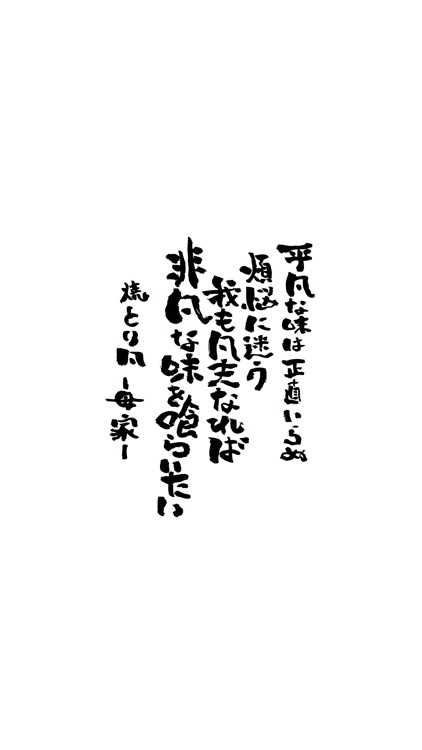 平凡な味は正直いらぬ
煩悩に迷う
我も凡夫なれば
非凡な味を喰らいたい
焼とり凡ー母家ー